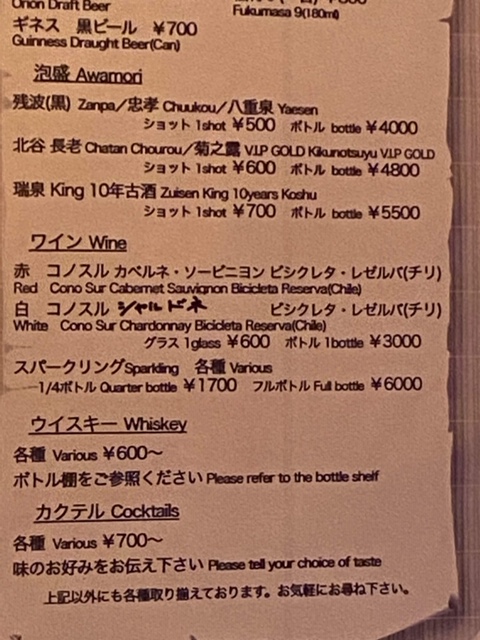 Orion Draft Beer
Fukumasa 9(180ml)
ギネス 黒ビール ¥700
Guinness Draught Beer(Can)
泡盛 Awamori
残波(黒) Zanpa／忠孝 Chuukou／八重泉 Yaesen
ショット 1shot ¥500 ボトル bottle ¥4000
北谷 長老 Chatan Chourou／菊之露 V.I.P GOLD Kikunotsuyu V.I.P GOLD
ショット 1shot ¥600 ボトル bottle ¥4800
瑞泉 King 10年古酒 Zuisen King 10years Koshu
ショット 1shot ¥700 ボトル bottle ¥5500
ワイン Wine
赤 コノスル カベルネ・ソービニヨン ビシクレタ・レゼルバ(チリ)
Red Cono Sur Cabernet Sauvignon Bicicleta Reserva(Chile)
白 コノスル シャルドネ ビシクレタ・レゼルバ(チリ)
White Cono Sur Chardonnay Bicicleta Reserva(Chile)
グラス 1glass ¥600 ボトル 1bottle ¥3000
スパークリングSparkling 各種 Various
1/4ボトル Quarter bottle ¥1700 フルボトル Full bottle ¥6000
ウイスキー Whiskey
各種 Various ¥600〜
ボトル棚をご参照ください Please refer to the bottle shelf
カクテル Cocktails
各種 Various ¥700〜
味のお好みをお伝え下さい Please tell your choice of taste
上記以外にも各種取り揃えております。お気軽にお尋ね下さい。